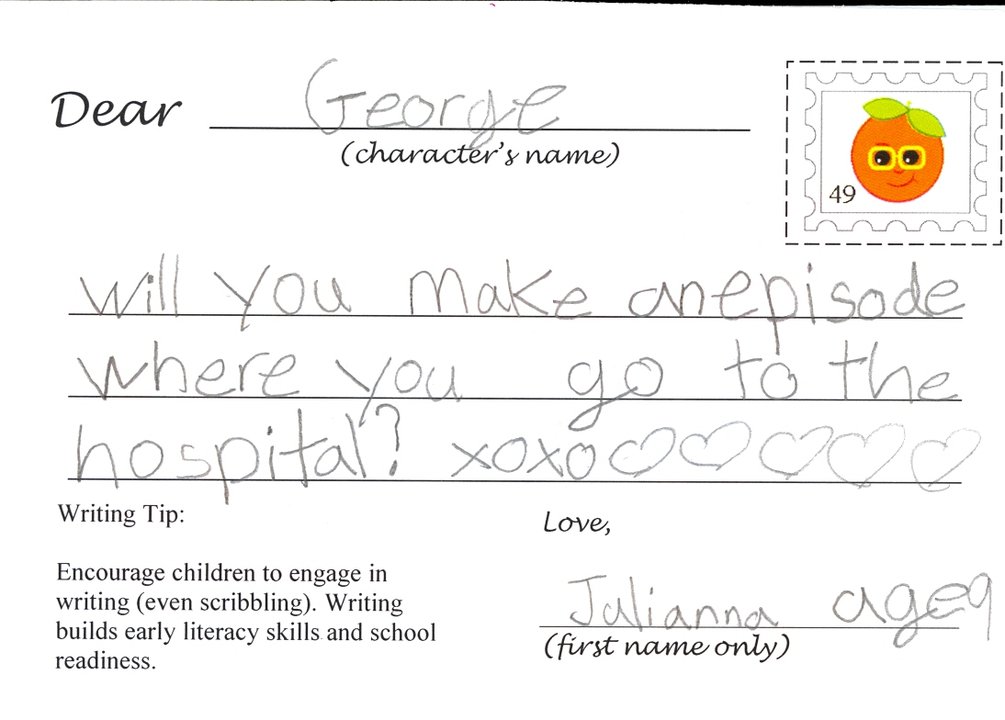 Dear George
(character's name)
49
will you make an episode
where you go to the
hospital? xoxo♡♡♡♡♡
Writing Tip:
Encourage children to engage in
writing (even scribbling). Writing
builds early literacy skills and school
readiness.
Love,
Julianna age 9
(first name only)